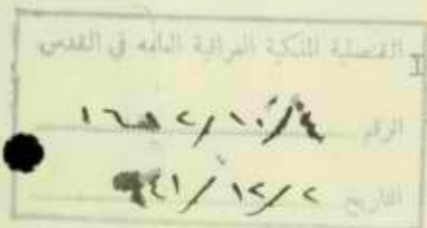 القنصلية الملكية العراقية العامة في القدس
الرقم
التاريخ ٩٤١/١٢/٢